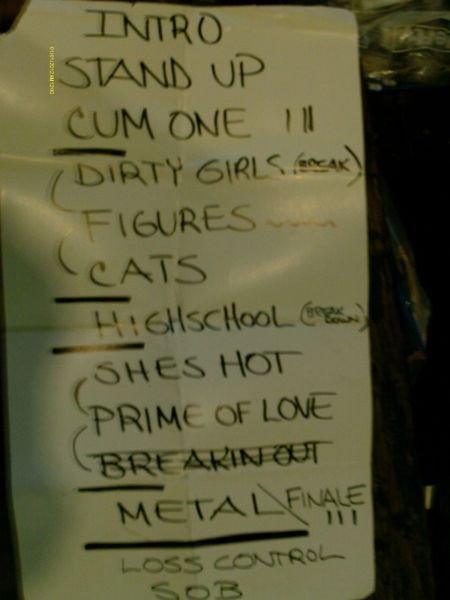 INTRO
STAND UP
CUM ONE III
DIRTY GIRLS (BREAK)
FIGURES
CATS
HIGHSCHOOL (BREAK DOWN)
SHES HOT
PRIME OF LOVE
BREAKIN OUT
METAL\FINALE III
LOSS CONTROL
SOB